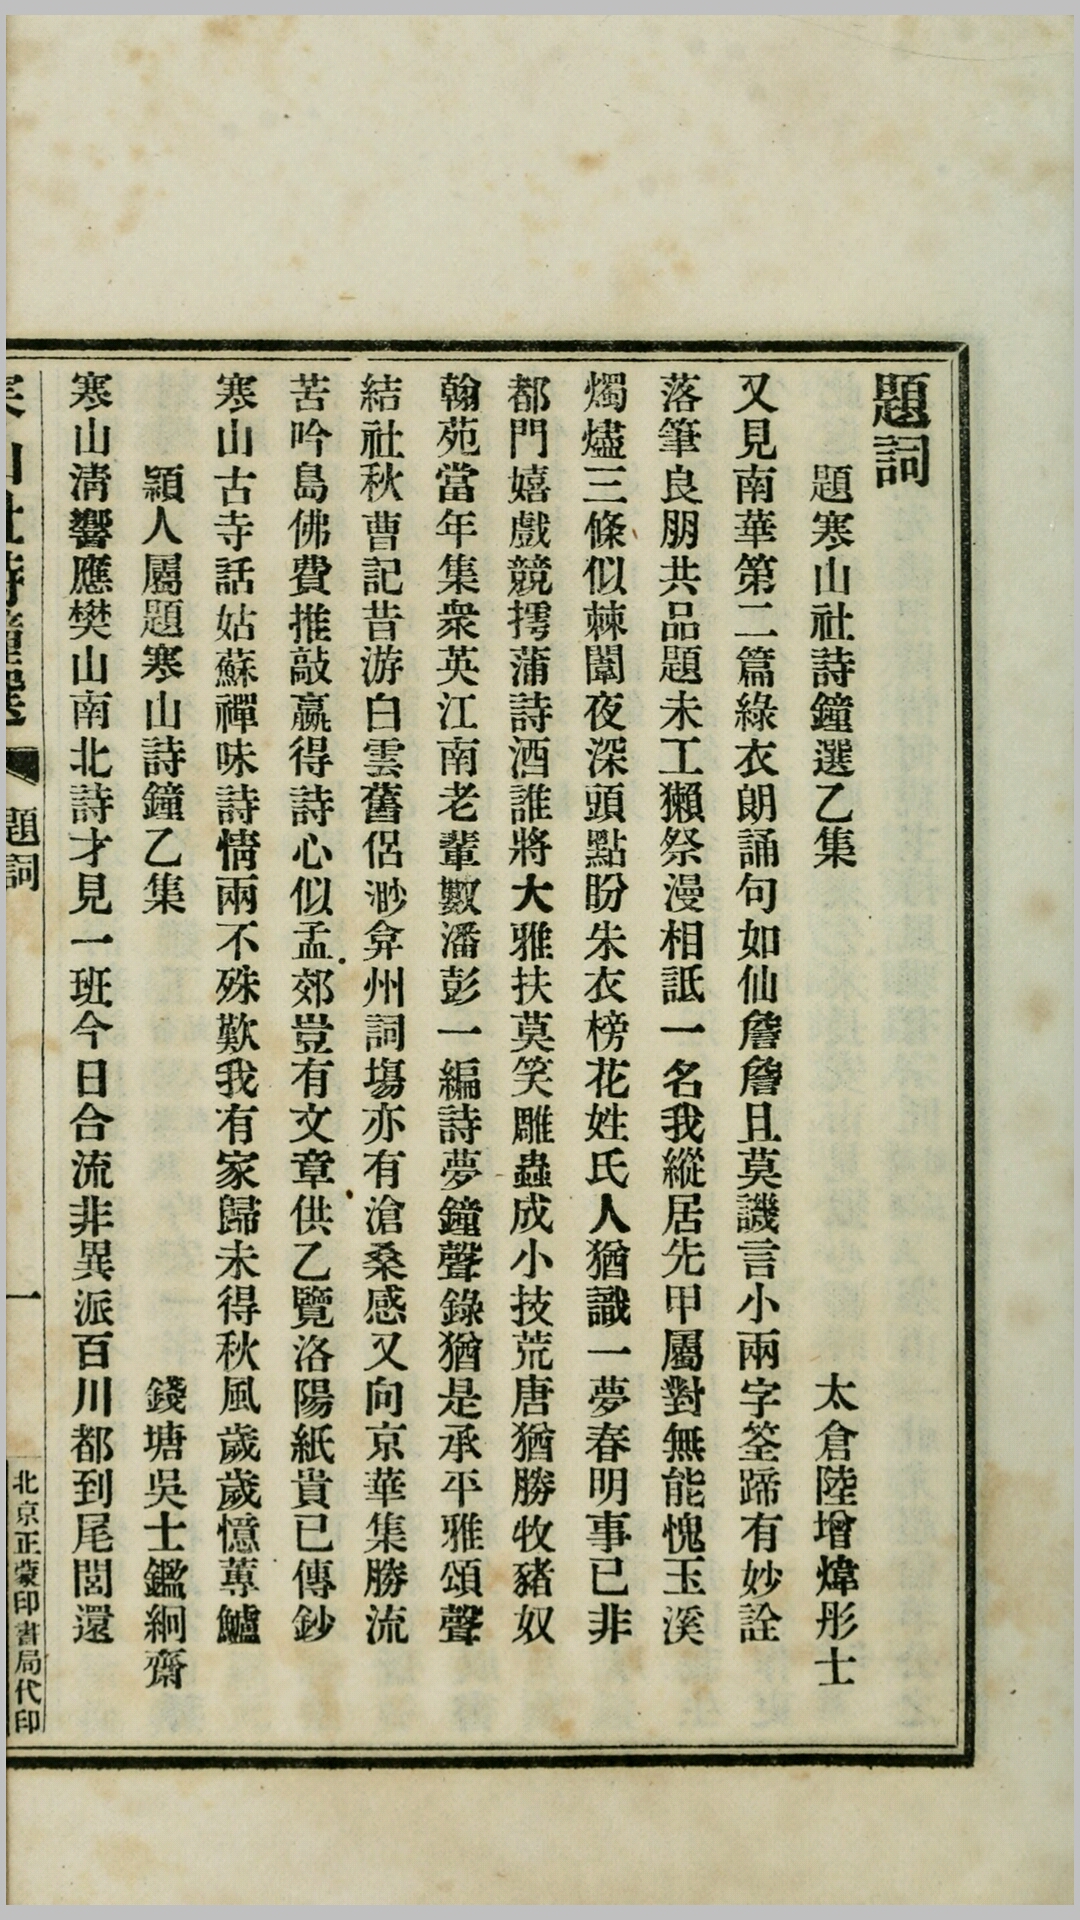 題詞
題寒山社詩鐘選乙集 太倉陸增煒彤士
又見南華第二篇綠衣朗誦句如仙詹詹且莫譏言小兩字筌蹄有妙詮
落筆良朋共品題未工獺祭漫相詆一名我縱居先甲屬對無能愧玉溪
燭燼三條似棘闈夜深頭點盼朱衣榜花姓氏人猶識一夢春明事已非
都門嬉戲競摴蒲詩酒誰將大雅扶莫笑雕蟲成小技荒唐猶勝牧豬奴
翰苑當年集衆英江南老輩數潘彭一編詩夢鐘聲錄猶是承平雅頌聲
結社秋曹記昔游白雲舊侶渺弇州詞塲亦有滄桑感又向京華集勝流
苦吟島佛費推敲贏得詩心似孟郊豈有文章供乙覽洛陽紙貴已傳鈔
寒山古寺話姑蘇禪味詩情兩不殊歎我有家歸未得秋風歲歲憶蓴鱸
潁人屬題寒山詩鐘乙集 錢塘吳士鑑絅齋
寒山淸響應樊山南北詩才見一班今日合流非異派百川都到尾閭還
寒山社詩鐘選 題詞 一 北京正蒙印書局代印